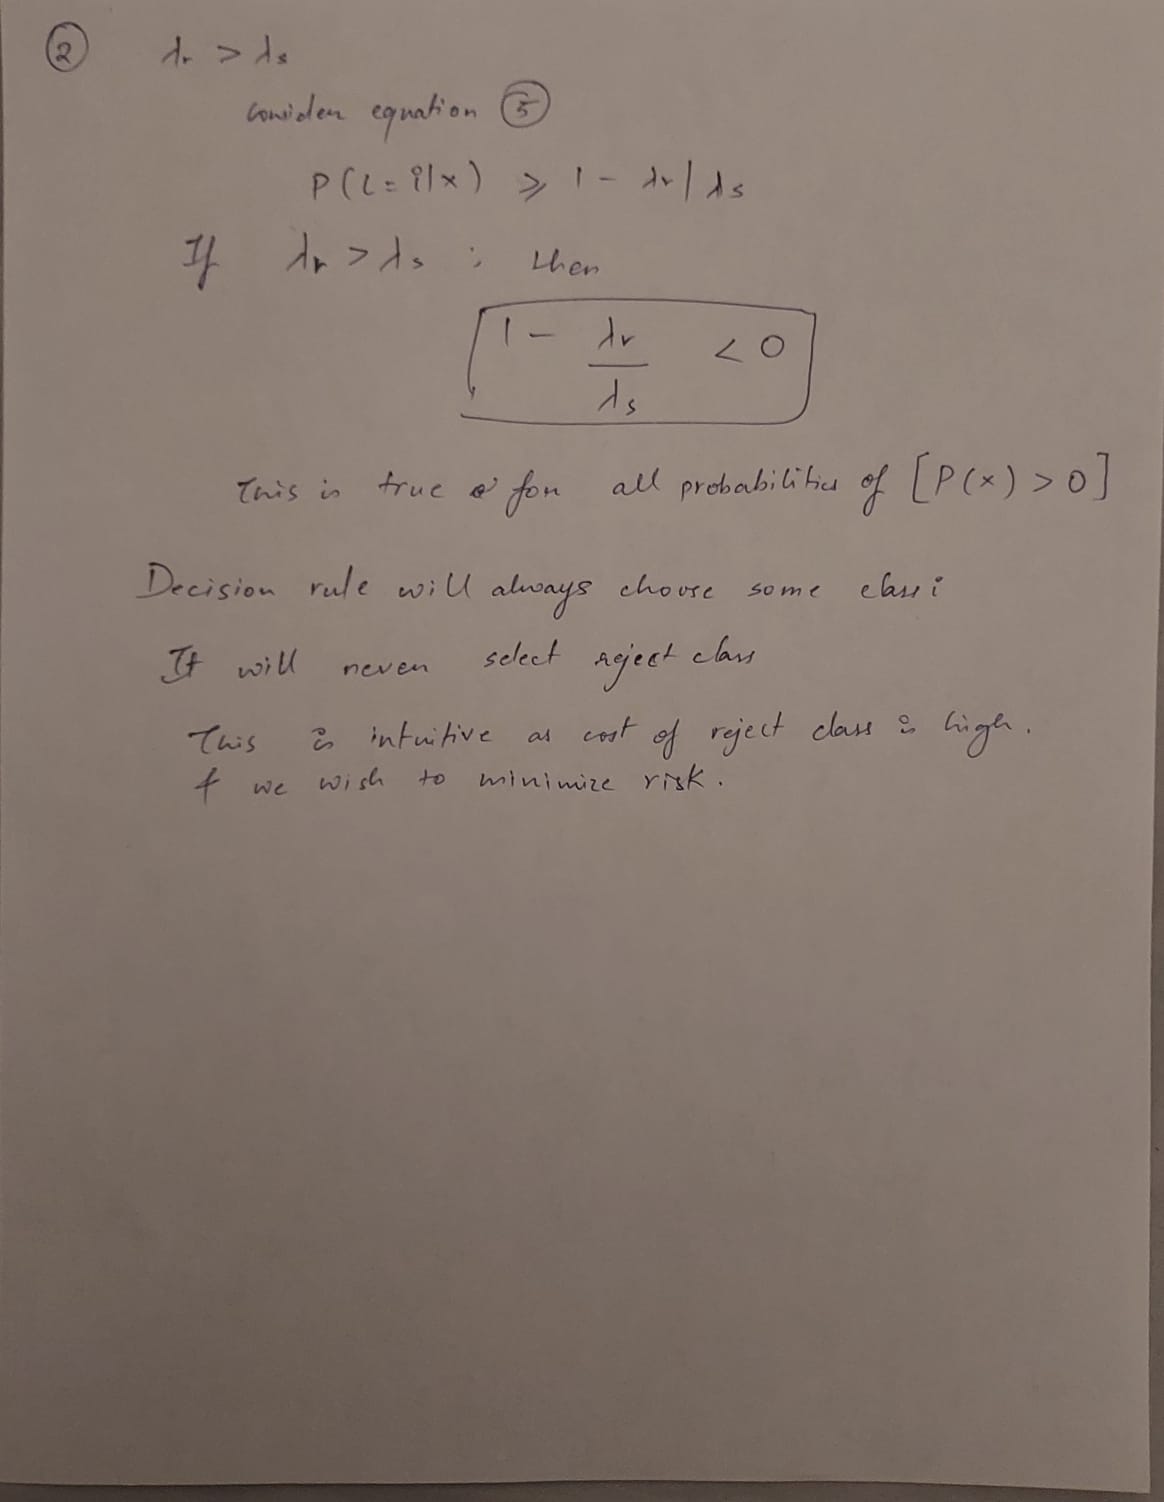 ② λr > λs
Consider equation ⑤
P(L=i|x) ⩾ 1 - λr/λs
If λr > λs ; then
1 - λr/λs < 0
This is true for all probabilities of [P(x) > 0]
Decision rule will always choose some class i
It will never select reject class
This is intuitive as cost of reject class is high.
& we wish to minimize risk.